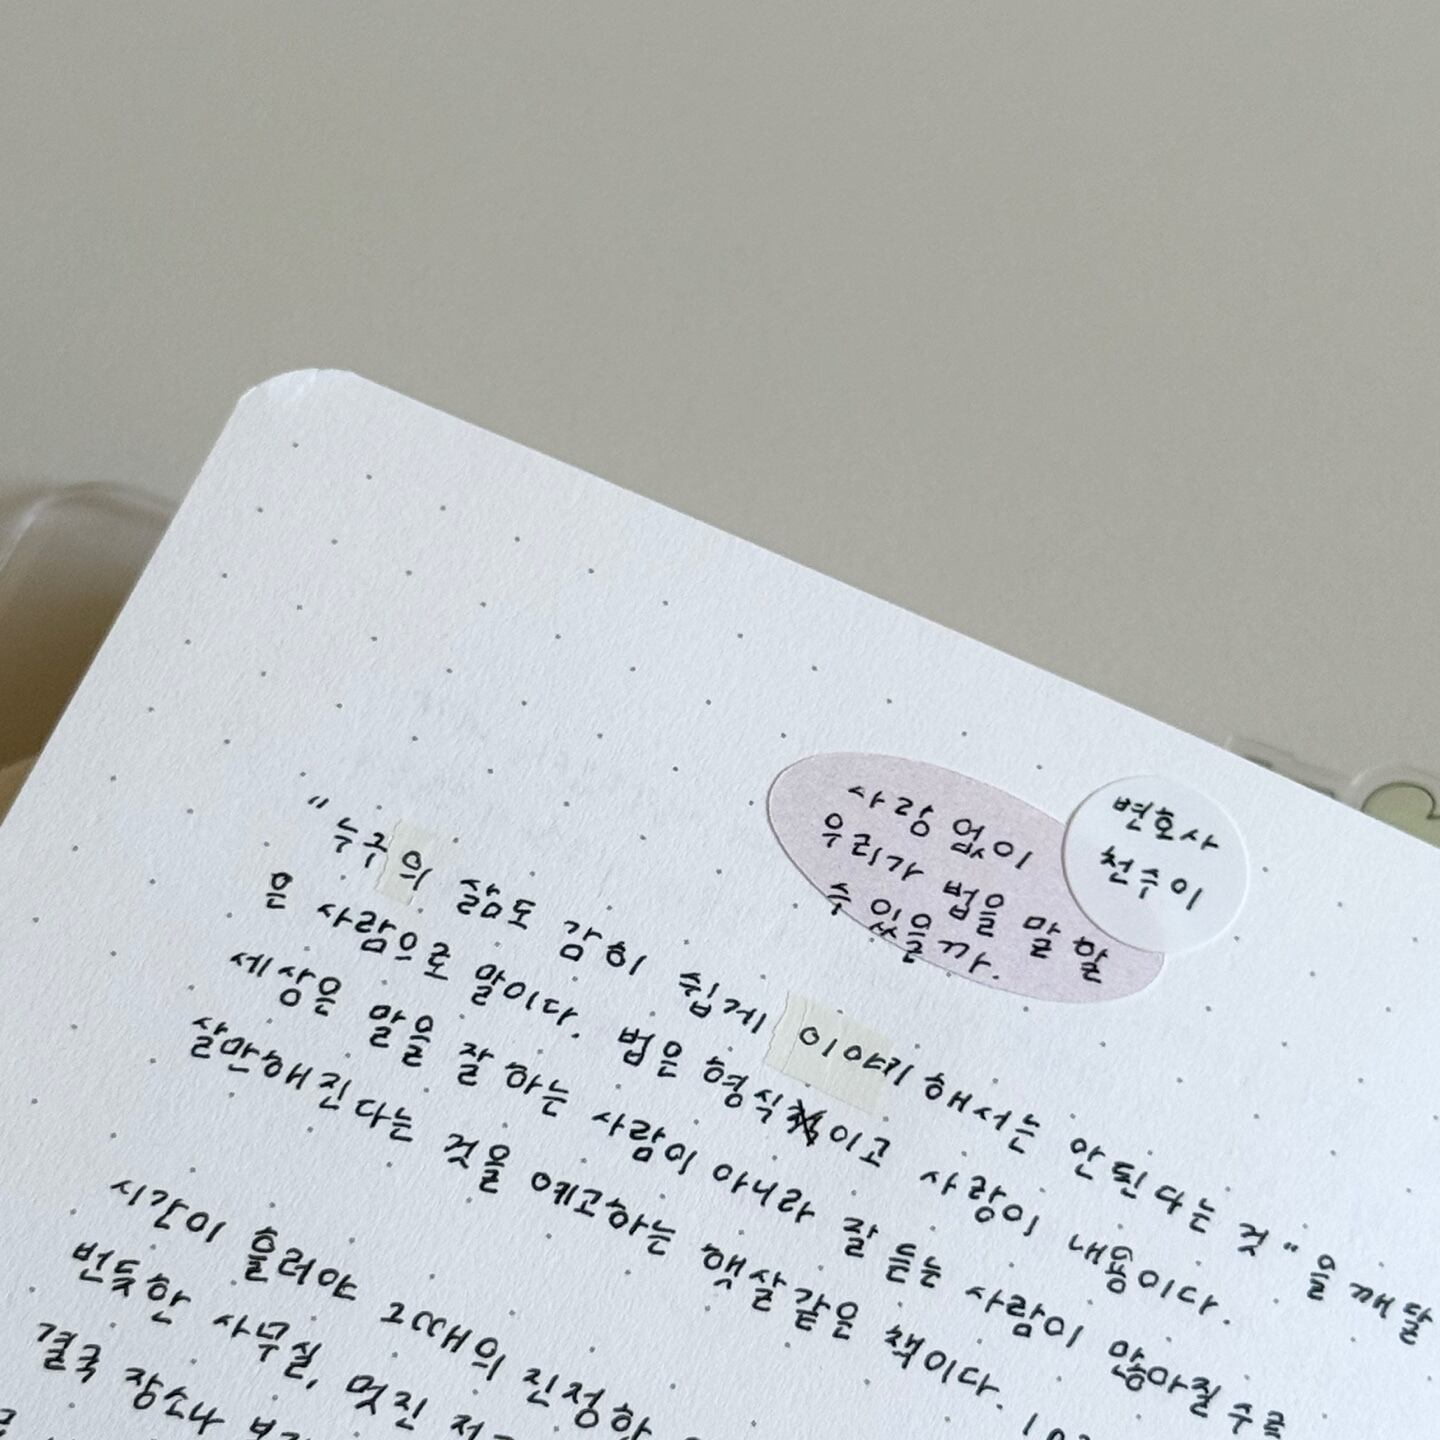 사랑 없이
우리가 법을 말할
수 있을까.
변호사
천수이
"누구의 삶도 감히 쉽게 이야기해서는 안된다는 것"을 깨달
은 사람으로 말이다. 법은 형식이고 사랑이 내용이다.
세상은 말을 잘 하는 사람이 아니라 잘 듣는 사람이 많아질수록
살만해진다는 것을 예고하는 햇살같은 책이다.
시간이 흘러야 그때의 진정한
번듯한 사무실, 멋진
결국 장소나